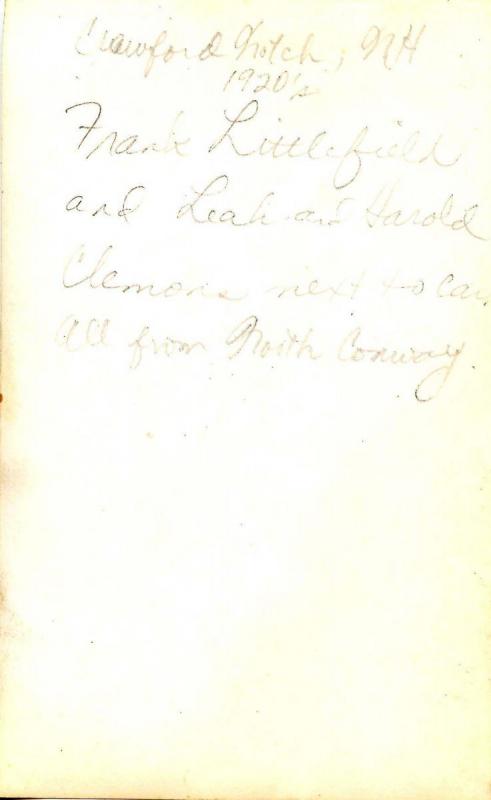 Crawford Notch, NH
1920's
Frank Littlefield
and Leah and Harold
Clemons next to car.
All from North Conway